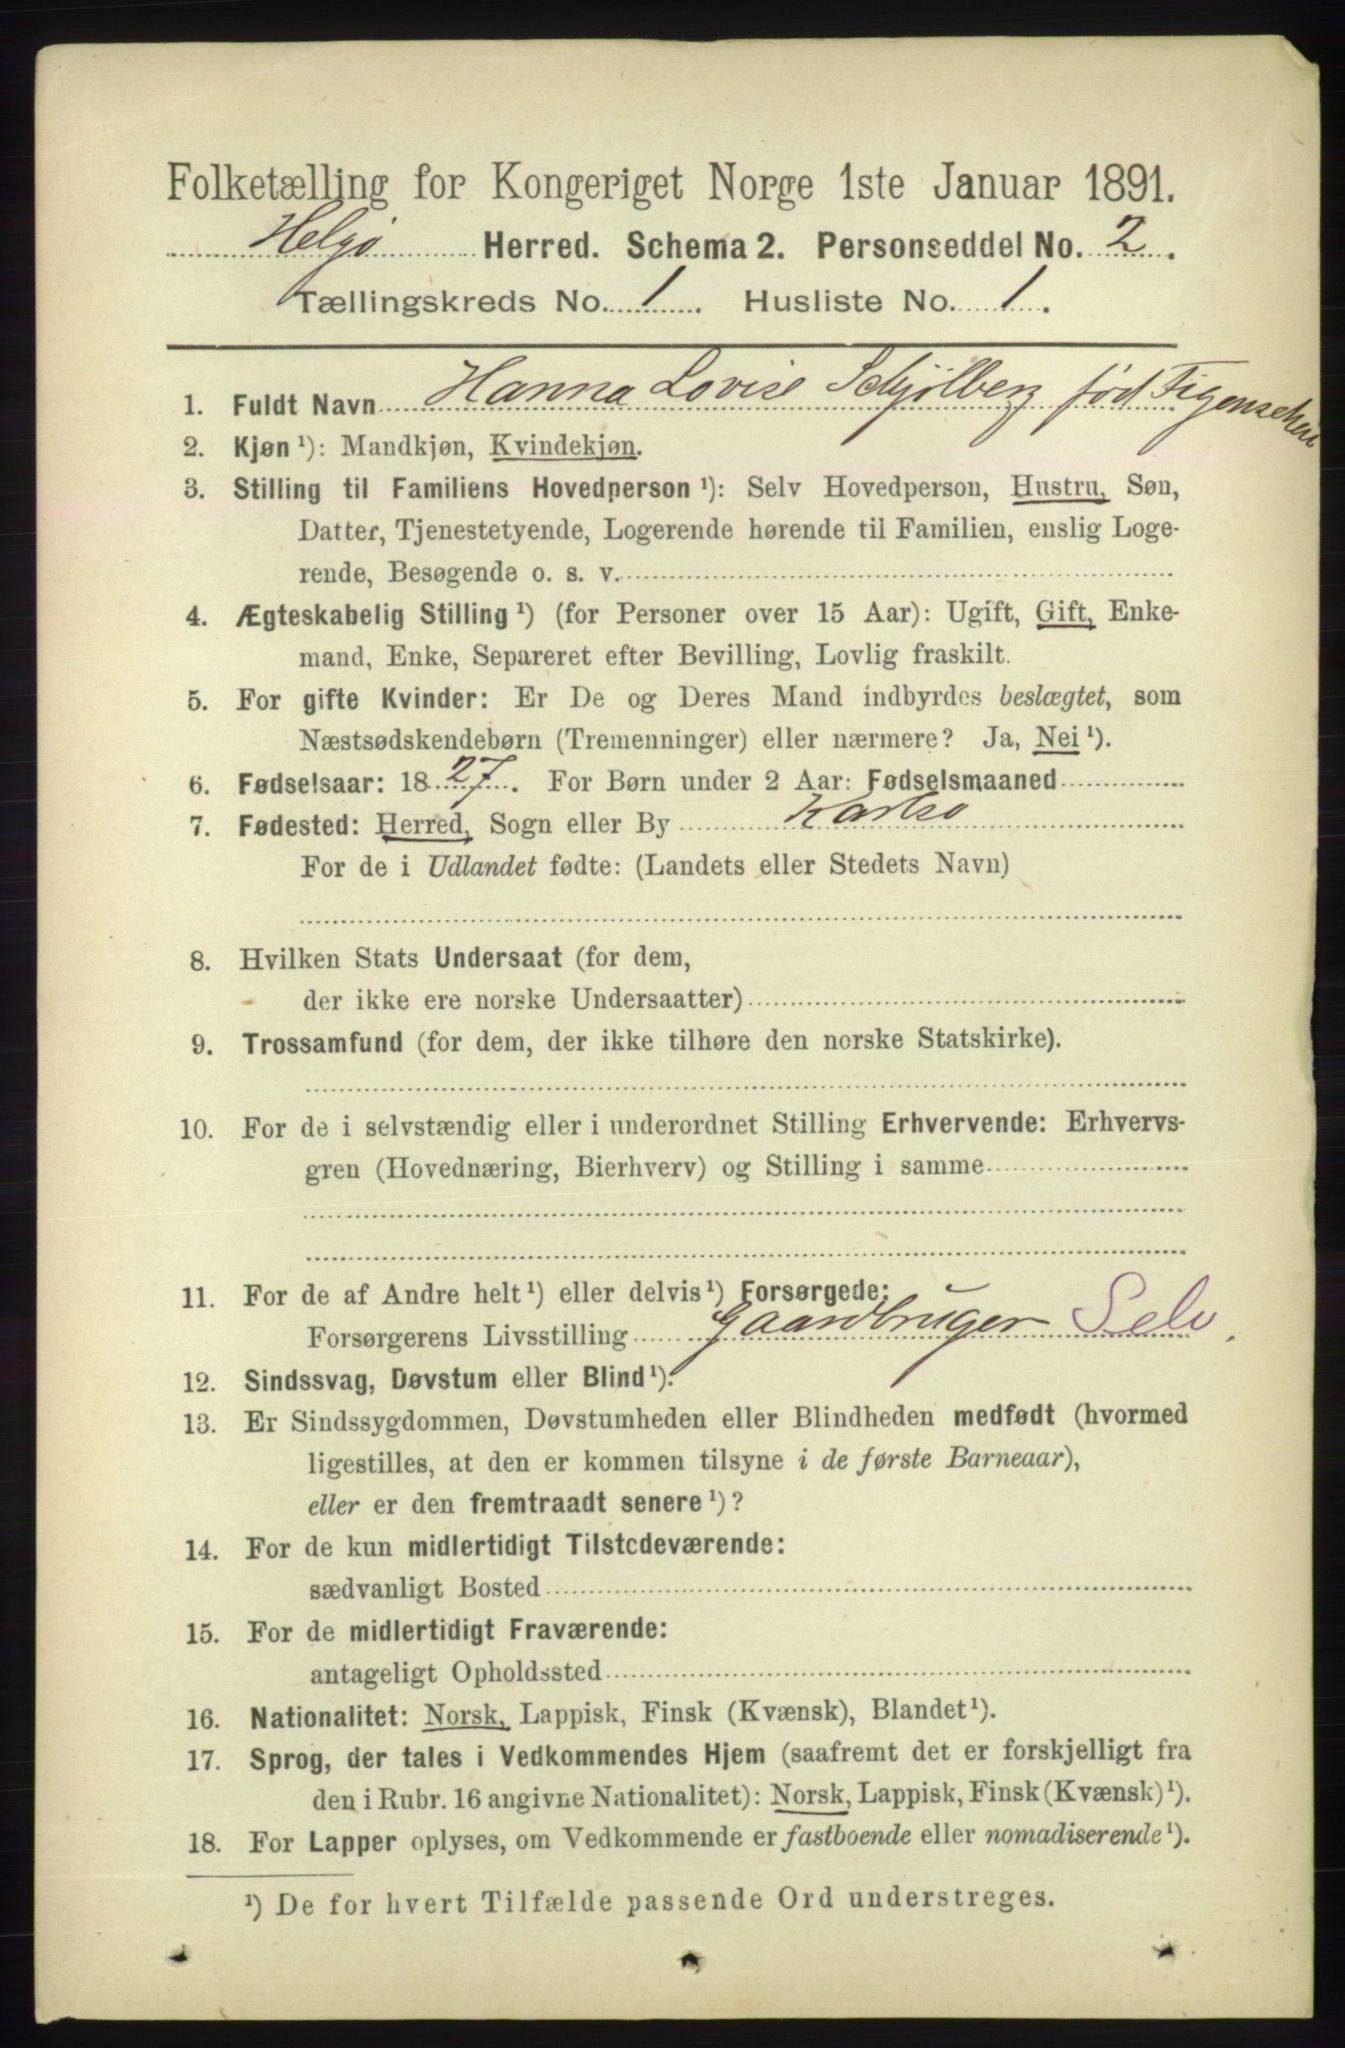 Folketælling for Kongeriget Norge 1ste Januar 1891.
Helgø Herred. Schema 2. Personseddel No. 2.
Tællingskreds No. 1. Husliste No. 1.
1. Fuldt Navn Hanna Lovise Schjølberg fød Figenschou
2. Kjøn ¹): Mandkjøn, Kvindekjøn.
3. Stilling til Familiens Hovedperson ¹): Selv Hovedperson, Hustru, Søn,
Datter, Tjenestetyende, Logerende hørende til Familien, enslig Loge-
rende, Besøgende o. s. v.
4. Ægteskabelig Stilling ¹) (for Personer over 15 Aar): Ugift, Gift, Enke-
mand, Enke, Separeret efter Bevilling, Lovlig fraskilt.
5. For gifte Kvinder: Er De og Deres Mand indbyrdes beslægtet, som
Næstsødskendebørn (Tremenninger) eller nærmere? Ja, Nei ¹).
6. Fødselsaar: 18 27. For Børn under 2 Aar: Fødselsmaaned
7. Fødested: Herred, Sogn eller By Karlsø
For de i Udlandet fødte: (Landets eller Stedets Navn)
8. Hvilken Stats Undersaat (for dem,
der ikke ere norske Undersaatter)
9. Trossamfund (for dem, der ikke tilhøre den norske Statskirke).
10. For de i selvstændig eller i underordnet Stilling Erhvervende: Erhvervs-
gren (Hovednæring, Bierhverv) og Stilling i samme
11. For de af Andre helt ¹) eller delvis ¹) Forsørgede:
Forsørgerens Livsstilling Gaardbruger Selv.
12. Sindssvag, Døvstum eller Blind ¹).
13. Er Sindssygdommen, Døvstumheden eller Blindheden medfødt (hvormed
ligestilles, at den er kommen tilsyne i de første Barneaar),
eller er den fremtraadt senere ¹)?
14. For de kun midlertidigt Tilstedeværende:
sædvanligt Bosted
15. For de midlertidigt Fraværende:
antageligt Opholdssted
16. Nationalitet: Norsk, Lappisk, Finsk (Kvænsk), Blandet ¹).
17. Sprog, der tales i Vedkommendes Hjem (saafremt det er forskjelligt fra
den i Rubr. 16 angivne Nationalitet): Norsk, Lappisk, Finsk (Kvænsk) ¹).
18. For Lapper oplyses, om Vedkommende er fastboende eller nomadiserende ¹).
¹) De for hvert Tilfælde passende Ord understreges.